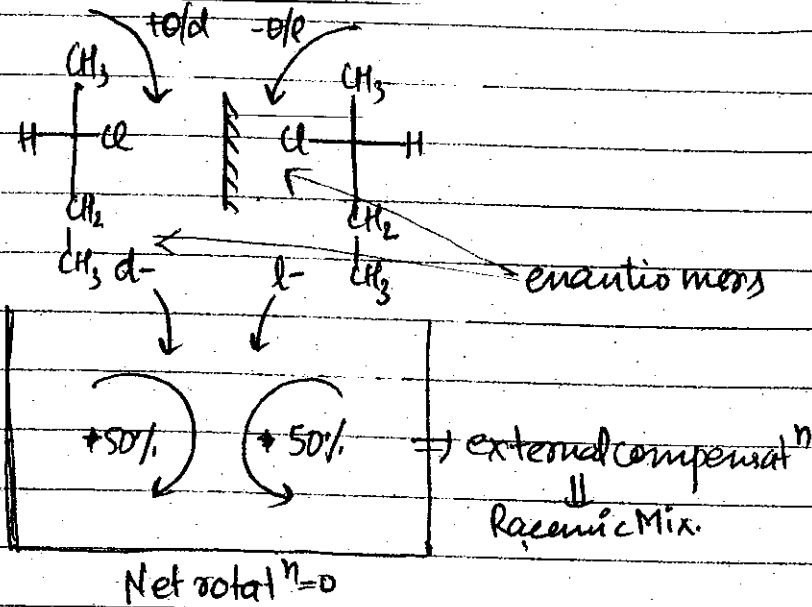 +θ/d -θ/l
CH₃ CH₃
H Cl Cl H
CH₂ CH₂
CH₃ d- l- CH₃
enantiomers
+50% + 50% ⇒ external compensatⁿ
⇓
Racemic Mix.
Net rotatⁿ=0